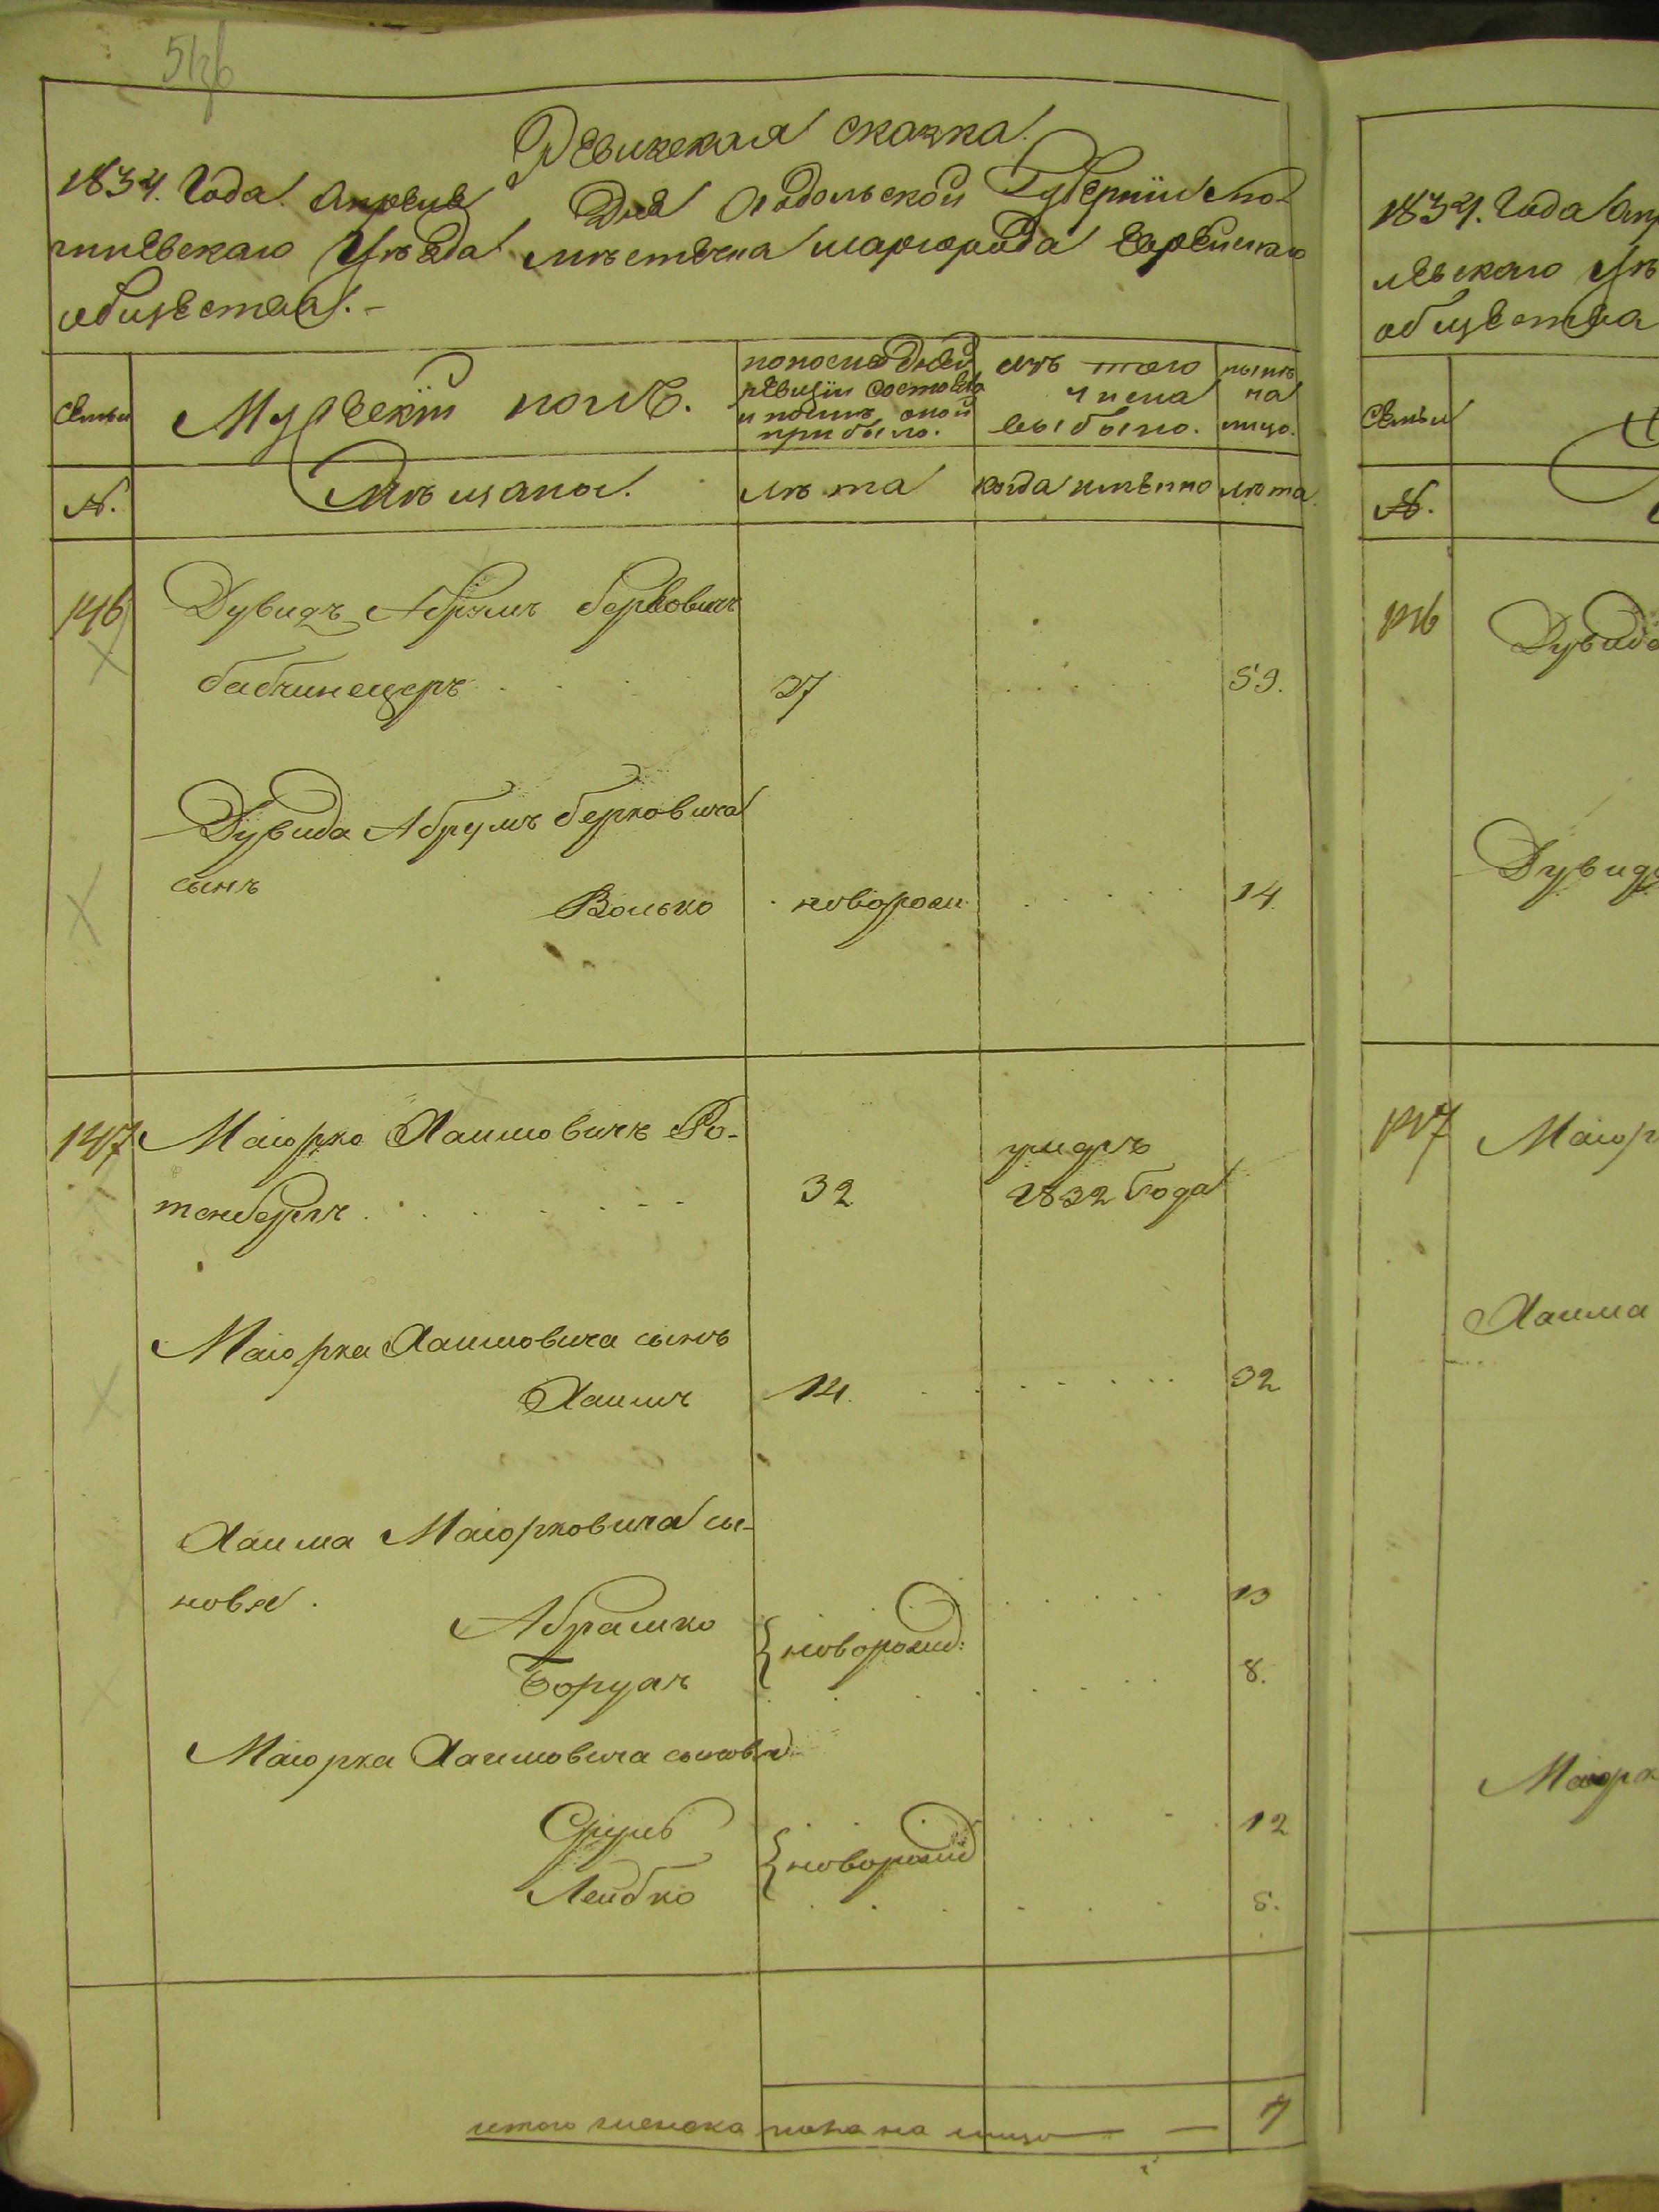 Ревижская сказка.
1834. Года Апреля Дня Подольской Губернiи Мо-
гилевскаго Уѣзда мѣстечка шаргорода Еврейскаго
общества. -
семьи Мужескiй полъ. по последней ревизiи состояло и послѣ оной прибыло. изъ того числа выбыло. нынѣ на лицо.
№. Мѣщане. лѣта когда именно лѣта
146 Дувидъ Абрумъ берковичъ
бабчинецеръ 37 59.
Дувида Абрумъ берковича
сынъ
Волько новорож 14
147 Маiорко Хаимовичъ Ро-
умеръ
тенбергъ 32 1832 Года
Маiорка Хаимовича сынъ
Хаимъ 14. 32
Хаима Маiорковича сы-
новья.
Абрашко новорожд: 13
Борухъ 8.
Маiорка Хаимовича сыновья
Сруль новорожд 12
Лейбко 5.
итого мужеска пола на лицо — 7
1834. Года Апр
левскаго Уѣ
общества
семьи
№.
146 Дувида
Дувида
147 Маiор
Хаима
Маiорк